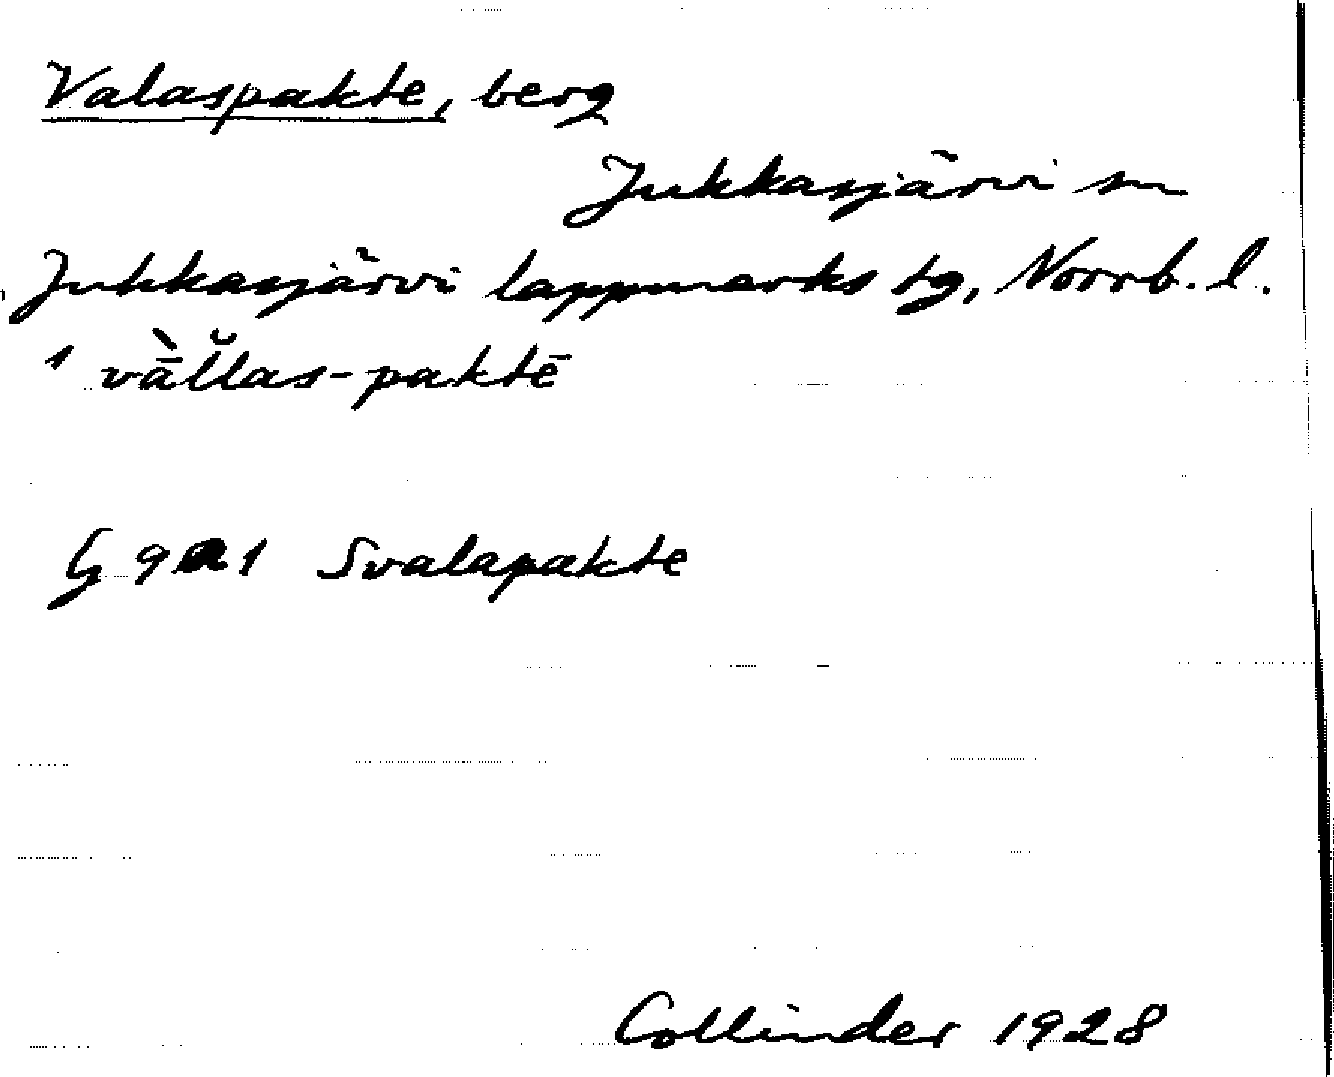 Valaspakte, berg
Jukkasjärvi sn
Jukkasjärvi lappmarks tg, Norrb. l.
1 vā̀l̆las-paktē
G 9 a 1 Svalapakte
Collinder 1928